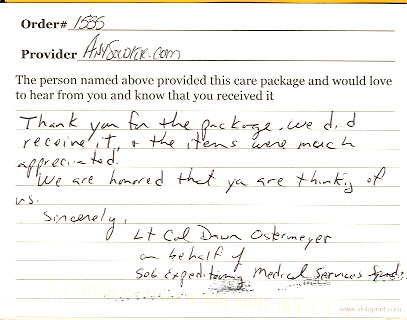 Order# 1535
Provider AnySoldier.com
The person named above provided this care package and would love
to hear from you and know that you received it
Thank you for the package. We did
receive it, & the items were much
appreciated.
We are honored that you are thinking of
us.
Sincerely,
Lt Col Dawn Ostermeyer
on behalf of
506 Expeditionary Medical Services Squad.
www.vistaprint.com